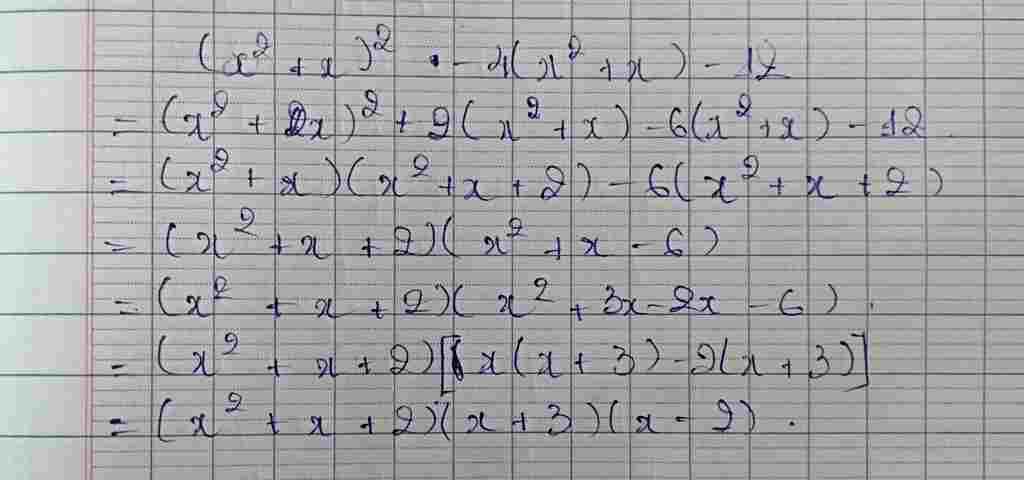 (x² + x)² - 4(x² + x) - 12
= (x² + x)² + 2(x² + x) - 6(x² + x) - 12
= (x² + x)(x² + x + 2) - 6(x² + x + 2)
= (x² + x + 2)(x² + x - 6)
= (x² + x + 2)(x² + 3x - 2x - 6).
= (x² + x + 2)[x(x + 3) - 2(x + 3)]
= (x² + x + 2)(x + 3)(x - 2).